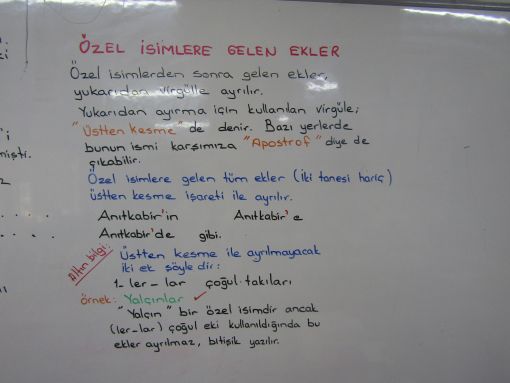 ÖZEL İSİMLERE GELEN EKLER
Özel isimlerden sonra gelen ekler,
yukarıdan virgülle ayrılır.
Yukarıdan ayırma için kullanılan virgüle;
"Üstten kesme" de denir. Bazı yerlerde
bunun ismi karşımıza "Apostrof" diye de
çıkabilir.
Özel isimlere gelen tüm ekler (iki tanesi hariç)
üstten kesme işareti ile ayrılır.
Anıtkabir'in Anıtkabir'e
Anıtkabir'de gibi.
Altın bilgi:
Üstten kesme ile ayrılmayacak
iki ek şöyledir:
1- ler- lar çoğul takıları
örnek: Yalçınlar ✓
"Yalçın" bir özel isimdir ancak
(ler-lar) çoğul eki kullanıldığında bu
ekler ayrılmaz, bitişik yazılır.